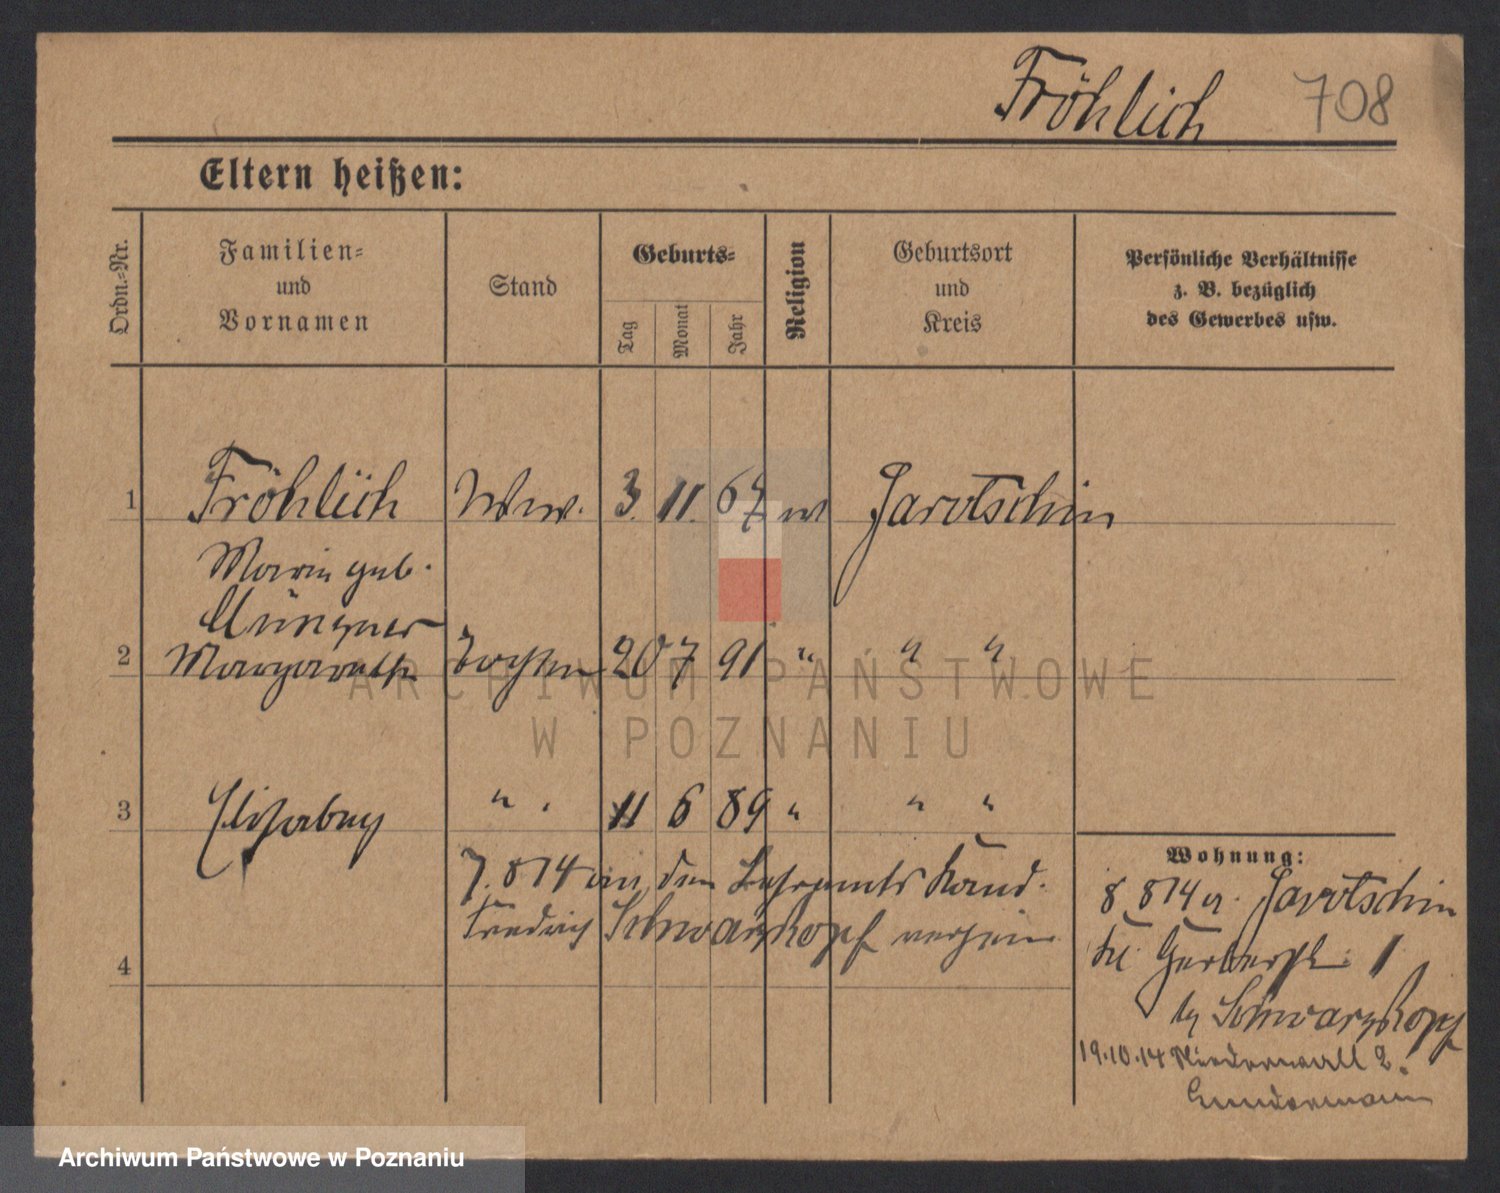 Fröhlich 708
Eltern heißen:
Ordn.-Nr.
Familien-
und
Vornamen
Stand
Geburts-
Tag
Monat
Jahr
Religion
Geburtsort
und
Kreis
Persönliche Verhältnisse
z. B. bezüglich
des Gewerbes usw.
1 Fröhlich Wwe. 3. 11. 67 Jarotschin
Marie geb.
Münzner
2 Margarethe Tochter 20 7 91 " " "
3 Elisabeth " " 11 6 89 " " "
7.8 14 an den Lehramts Kand.
Friedrich Schwarzkopf
4
Wohnung:
8 8 14 a. Jarotschin
Gerberstr. 1
by Schwarzkopf
19.10.14 Niederwall 2.
Gundermann
ARCHIWUM PAŃSTWOWE
W POZNANIU
Archiwum Państwowe w Poznaniu